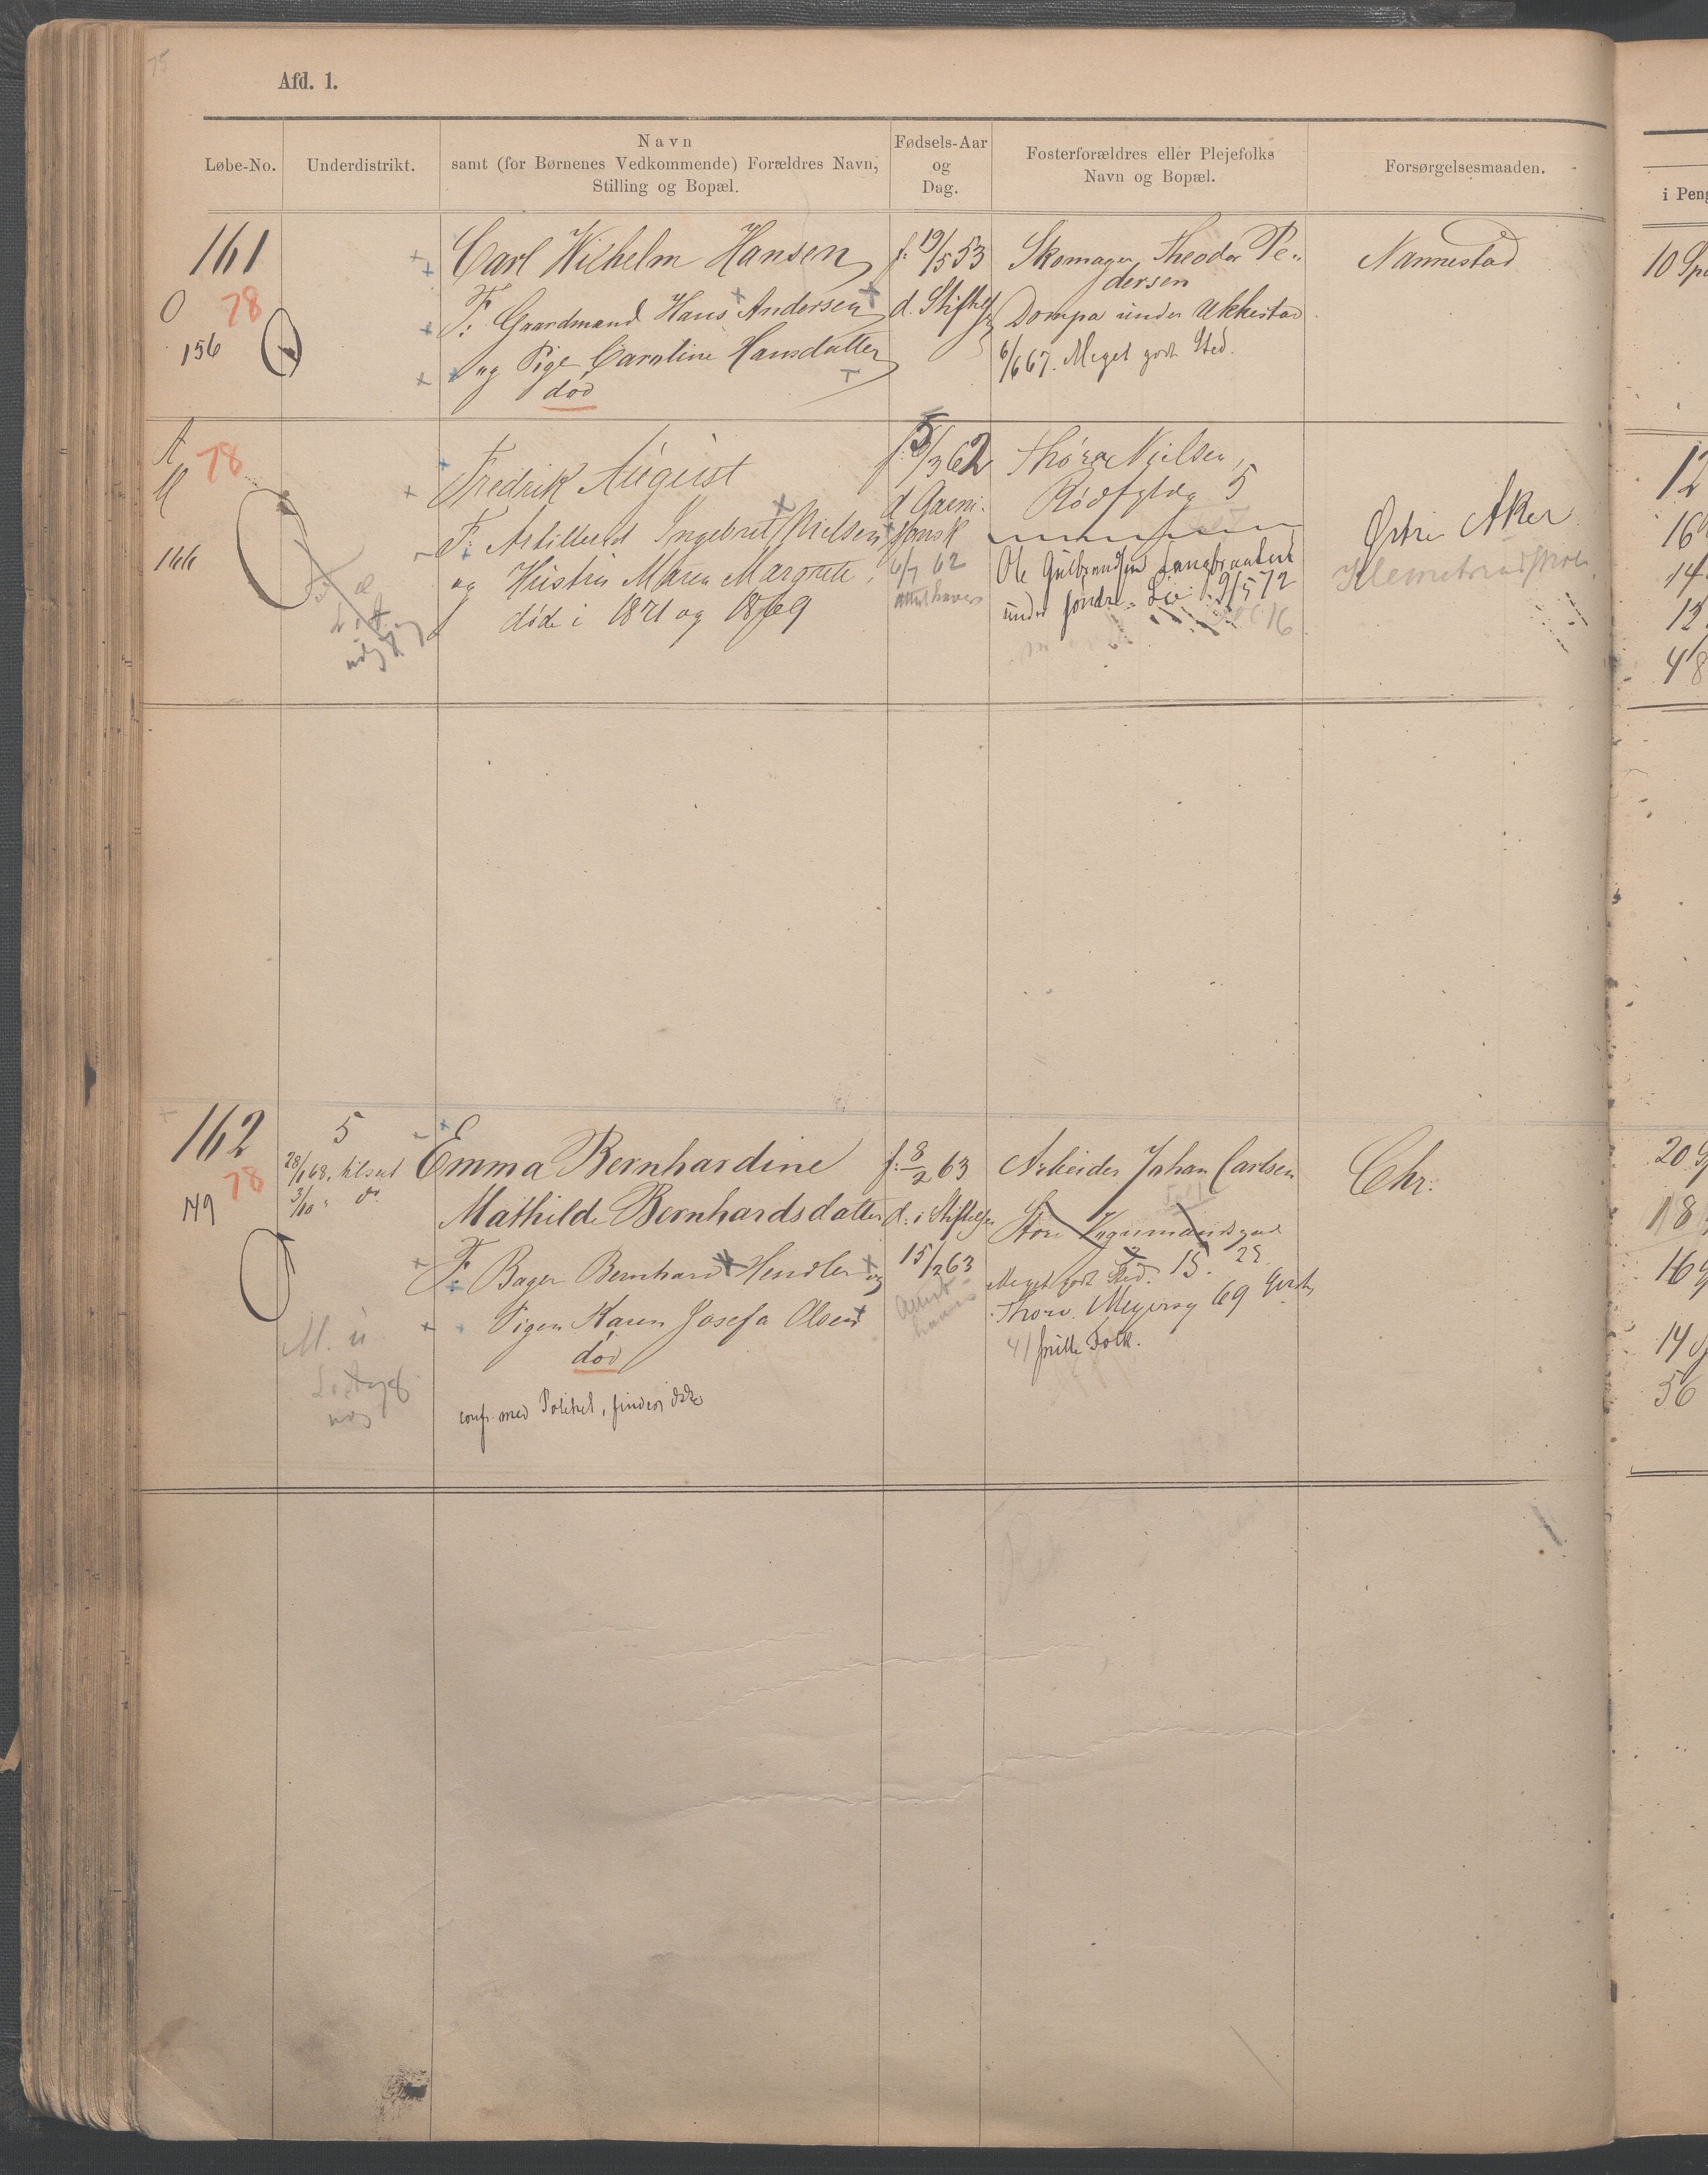 75
Afd. 1.
Løbe-No.
Underdistrikt.
Navn
samt (for Børnenes Vedkommende) Forældres Navn,
Stilling og Bopæl.
Fødsels-Aar
og
Dag.
Fosterforældres eller Plejefolks
Navn og Bopæl.
Forsørgelsesmaaden.
i Peng
161
O 78
156
Carl Wilhelm Hansen
F: Gaardmand Hans Andersen
og Pige Caroline Hansdatter
død
f: 19/5 53
d. Stiftels
Skomager Theodor Pe-
dersen
Dompa under Ukkestad
6/6 67. Meget godt Sted.
Nannestad
10 Spd
A 78
M
166
Fredrik August
F: Artillerist Ingebret Nielsen
og Hustru Maren Margrete,
døde i 1871 og 1869
5/3 62
d Garni-
sonsk
6/7 62
Attest haves
Thora Nielsen,
Rødfyldg 5
Ole Gulbrandsen Langbraaten
under søndre Lie 19/5 72
Østre Aker
12
16
14
12
48
162
78
149
5
28/1 68, tilseet
3/10 " do
Emma Bernhardine
Mathilde Bernhardsdatter
F: Bager Bernhard Hendler og
Pigen Karen Josefa Olsen
død
conf. med Politiet, findes ikke
f: 8/2 63
d: i Stiftelsen
15/2 63
Attest
haves
Arbeider Johan Carlsen
Store Vognmandsgad
Meget godt Sted. 15. 22.
Thorv. Meyersg 69
41 snille Folk.
Chr.
M. u
20 Sp
18
16
14
56